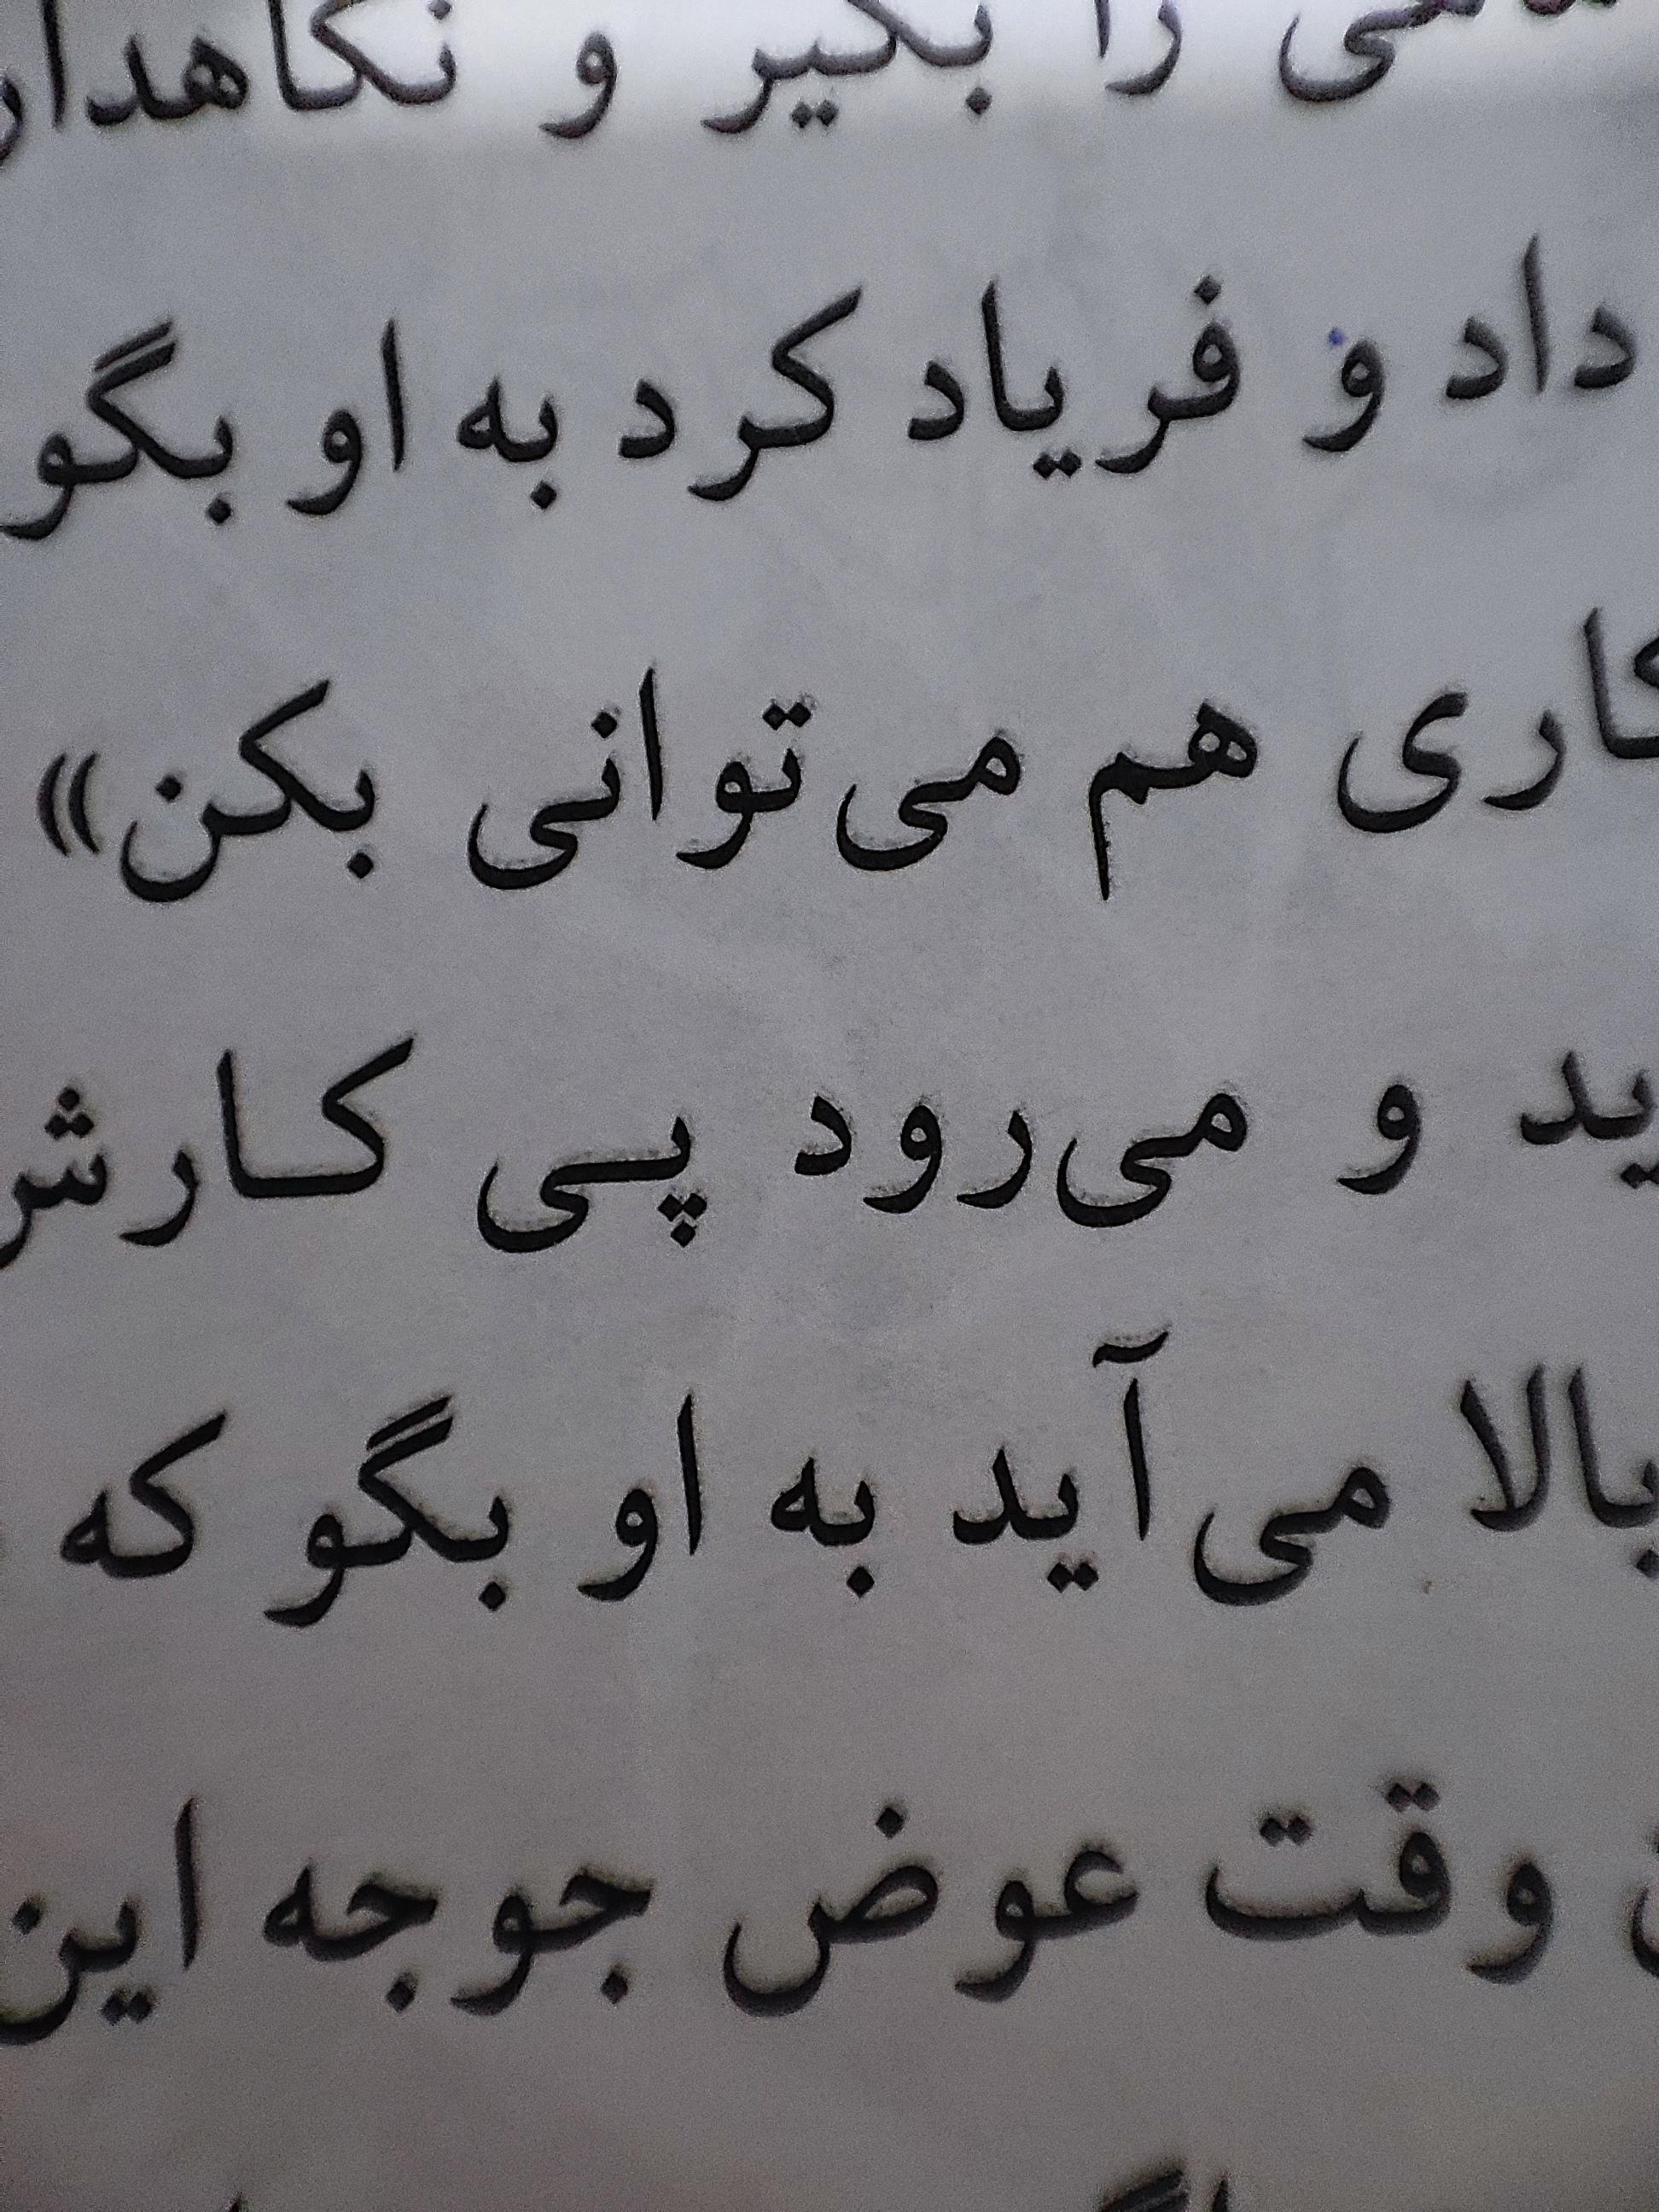 را بگیر و نگاهدار
داد و فریاد کرد به او بگو
کاری هم می‌توانی بکن»
و می‌رود پی کارش
بالا می‌آید به او بگو که
وقت عوض جوجه این